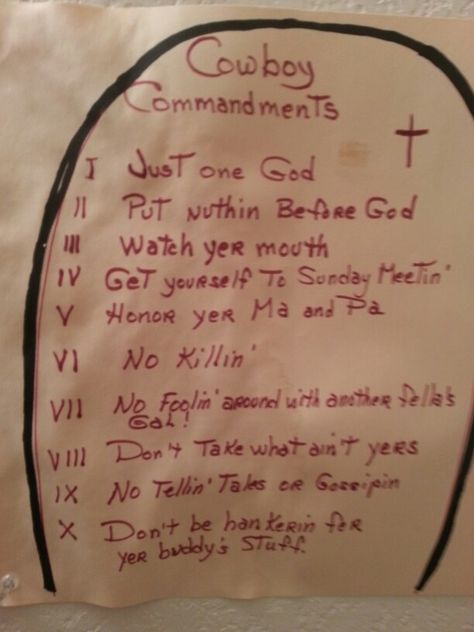 Cowboy
Commandments
I Just one God
II Put nuthin Before God
III Watch yer mouth
IV Get yourself To Sunday Meetin'
V Honor yer Ma and Pa
VI No Killin'
VII No Foolin' around with another fella's
Gal!
VIII Don't Take what ain't yers
IX No Tellin' Tales or Gossipin
X Don't be hankerin fer
yer buddy's Stuff.